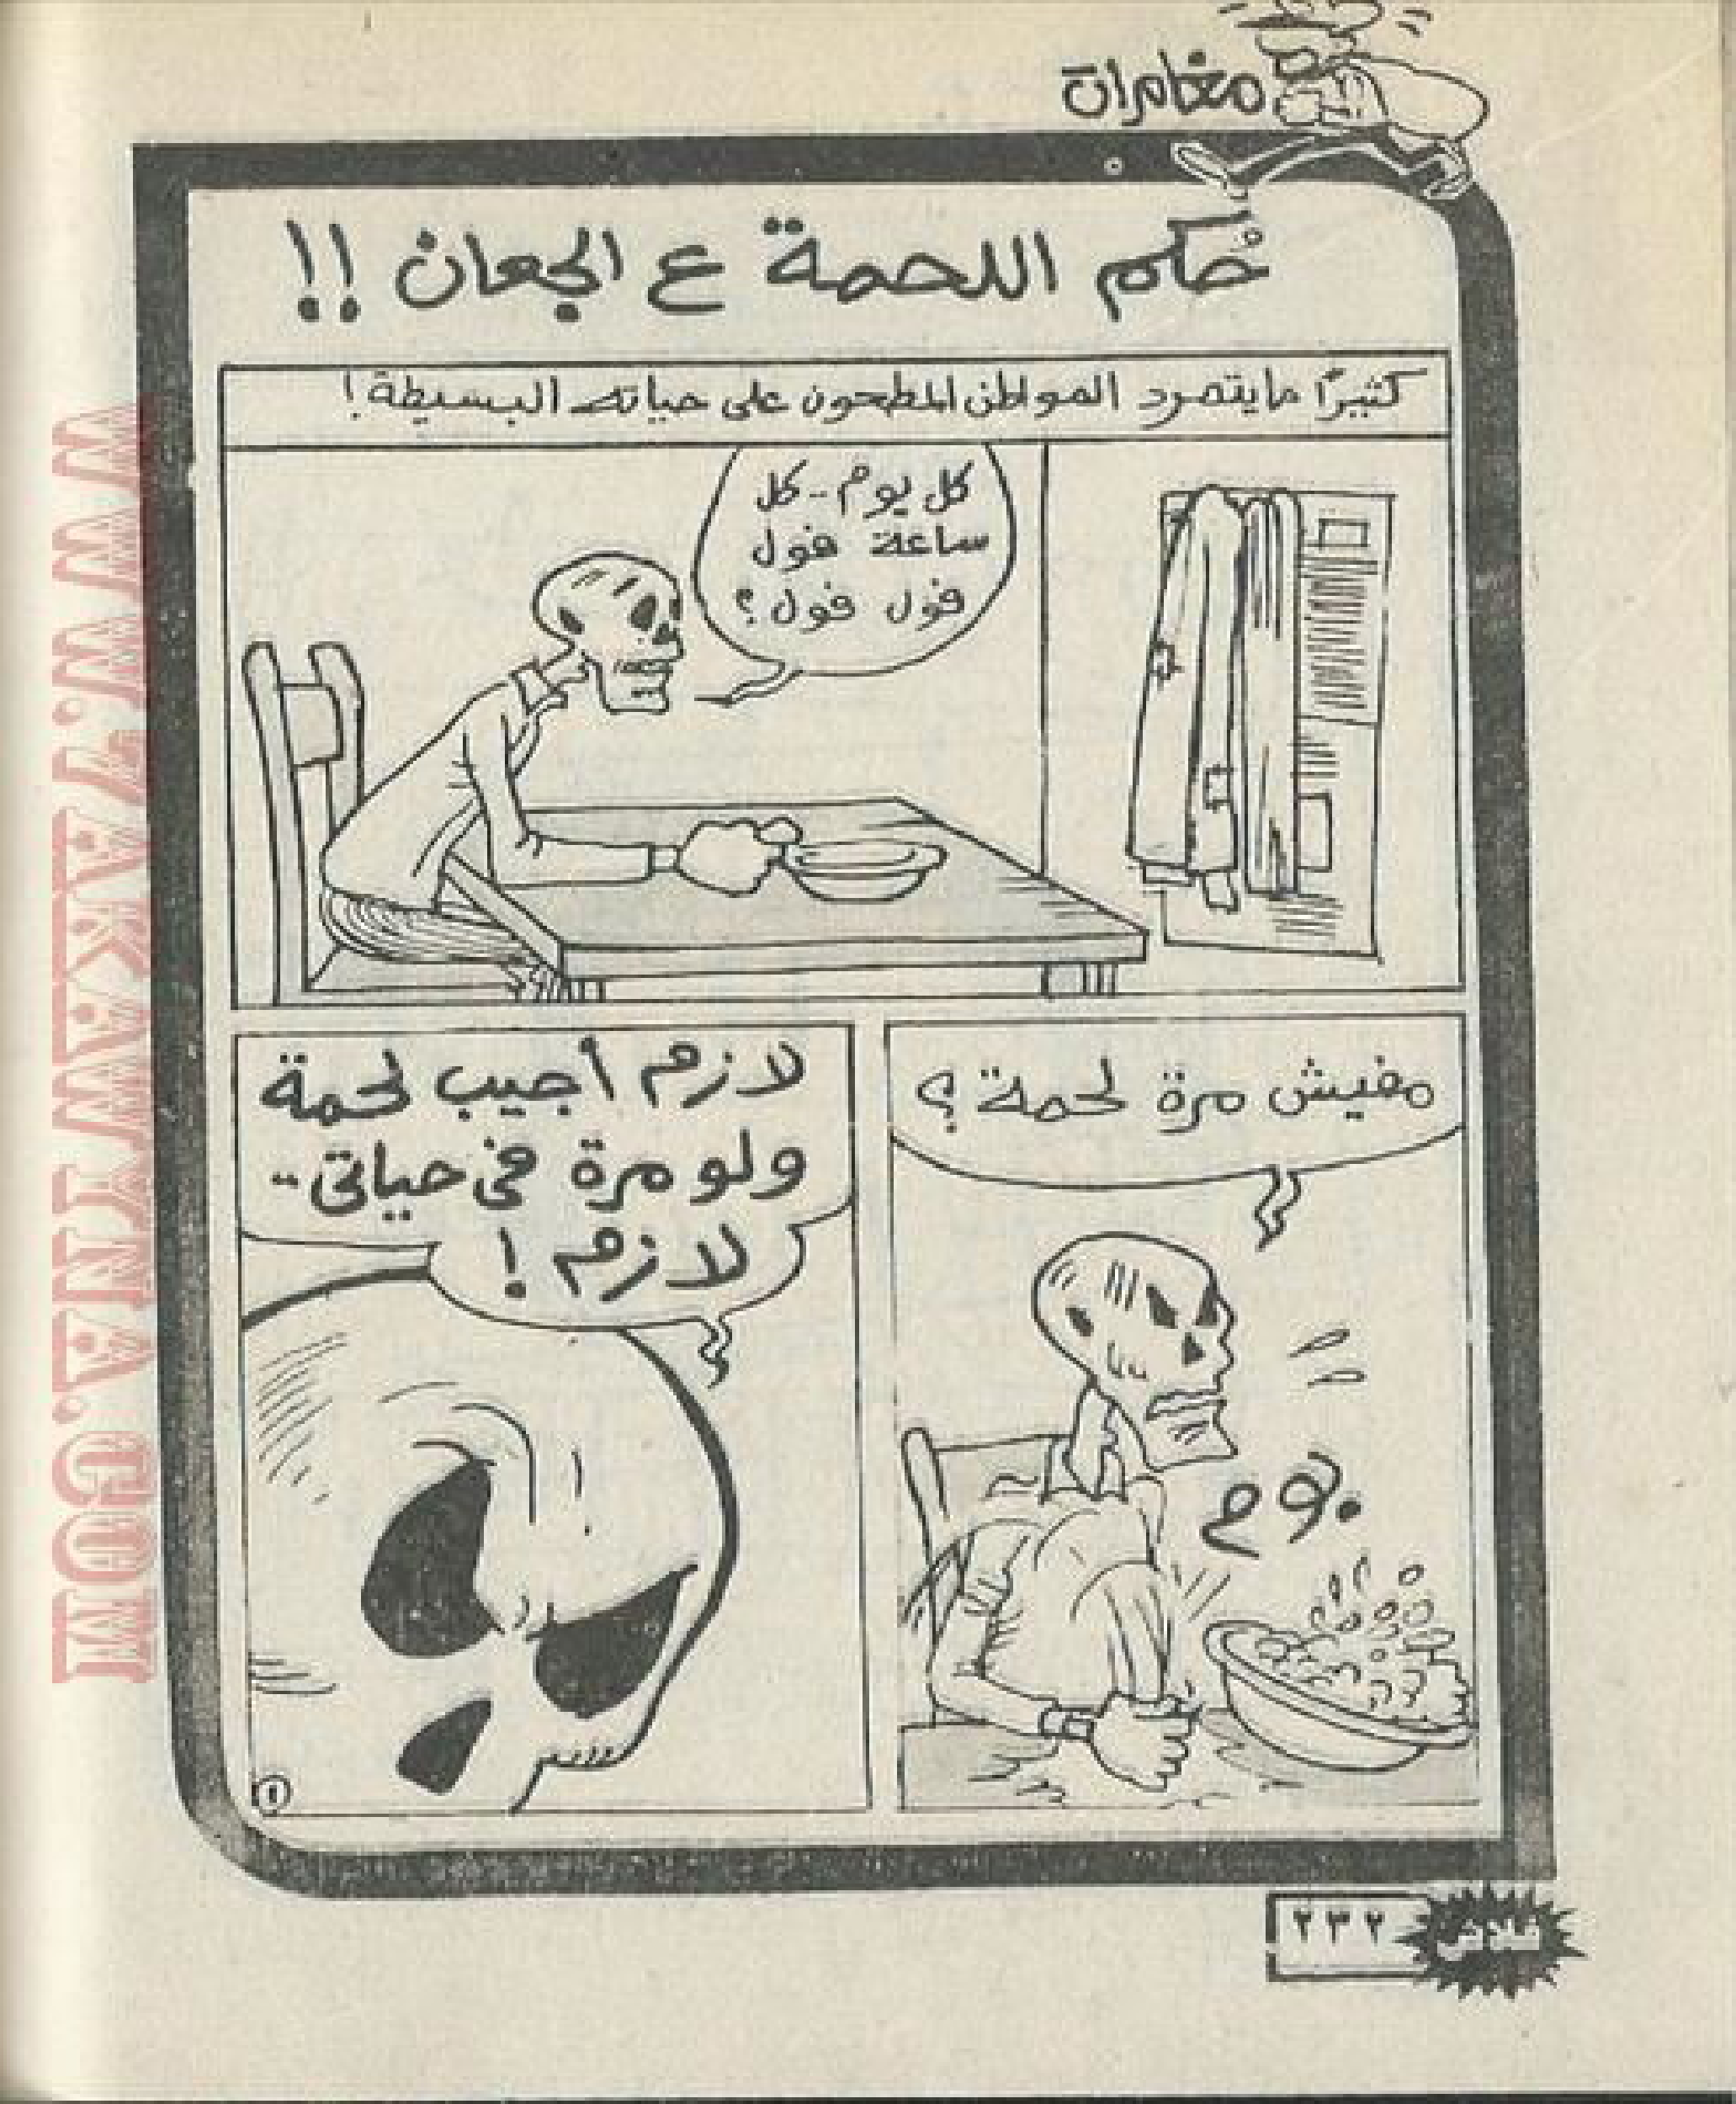 مغامرات
حُكم اللحمة ع الجعان !!
كثيرًا ما يتمرد المواطن المطحون على حياته البسيطة !
كل يوم .. كل
ساعة فول
فول فول ؟
مفيش مرة لحمة ؟
بوم
لازم أجيب لحمة
ولو مرة في حياتي ..
لازم !
١
فلاش
٢٣٢
WWW.7AKAWITNA.COM